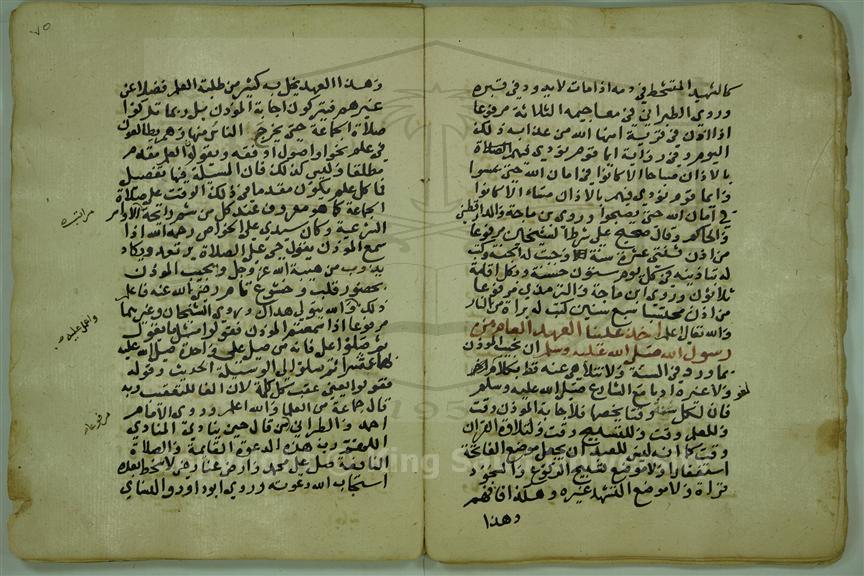 كالشهيد المتشحط في دمه اذا مات لا يدود في قبره
وروي الطبراني في معاجيمه الثلاثة مرفوعا
اذا اذن في قرية امنها الله من عذابه ذلك
اليوم وفي رواية ايما قوم نودي فيهم الصلاة
بالاذان صباحا الا كانوا في امان الله حتى يمسوا
وايما قوم نودي فيهم بالاذان مساء الا كانوا
في امان الله حتى يصبحوا وروي بن ماجة والدارقطني
والحاكم وقال صحيح علي شرط الشيخين مرفوعا
من اذن ثنتي عشرة سنة وجبت له الجنة وكتب
له بتاذينه في كل يوم ستون حسنة وبكل اقامة
ثلاثون وروي ابن ماجة والترمذي مرفوعا
من اذن محتسبا سبع سنين كتب له براة من النار
والله تعالى اعلم اخذ علينا العهد العام من
رسول الله صلى الله عليه وسلم ان نجيب المؤذن
بما ورد في السنة ولا نتلاهي عنه قط بكلام
لغو
ولا غيره ادبا مع الشارع صلى الله عليه وسلم
فان لكل سنة وقتا يخصها فلاجابة المؤذن وقت
وللعلم وقت وللتسبيح وقت ولتلاوة القران
وقت كما انه ليس للعبد ان يجعل موضع الفاتحة
استغفارا ولا موضع تسبيح الركوع والسجود
قراة ولا موضع التشهد غيره وهكذا فافهم
وهذا
٧٥
وهذا العهد يخل به كثير من طلبة العلم فضلا عن
غيرهم فيتركون اجابة المؤذن بل وربما تركوا
صلاة الجماعة حتى يخرج الناس منها وهم يطالعون
في علم نحو او اصول او فقه ويقول العلم مقدم
مطلقا وليس كذلك فان المسئلة فيها تفصيل
فما كل علم يكون مقدما في ذلك الوقت على صلاة
الجماعة كما هو معروف عند كل من شم رائحة الاوامر
الشرعية وكان سيدي علي الخواص رحمه الله اذا
سمع المؤذن يقول حي على الصلاة يرتعد ويكاد
يذوب من هيبة الله عز وجل ويجيب المؤذن
بحضور قلب وخشوع تام رضي الله عنه فاعلم
ذلك والله يتولى هداك وروي الشيخان وغيرهما
مرفوعا اذا سمعتم المؤذن فقولوا مثل ما يقول
ثم صلوا علي فانه من صلى علي واحدة صلى الله عليه
بها عشرا ثم سلوا لي الوسيلة الحديث وقوله
فقولوا يعني عقب كل كلمة لان الفا للتعقيب وبه
قال جماعة من العلما والله اعلم وروي الامام
احمد والطبراني من قال حين ينادي المنادي
اللهم رب هذه الدعوة القائمة والصلاة
النافعة صل على محمد وارض عنا رضى لا سخط بعده
استجاب الله دعوته وروي ابوداود والنساي